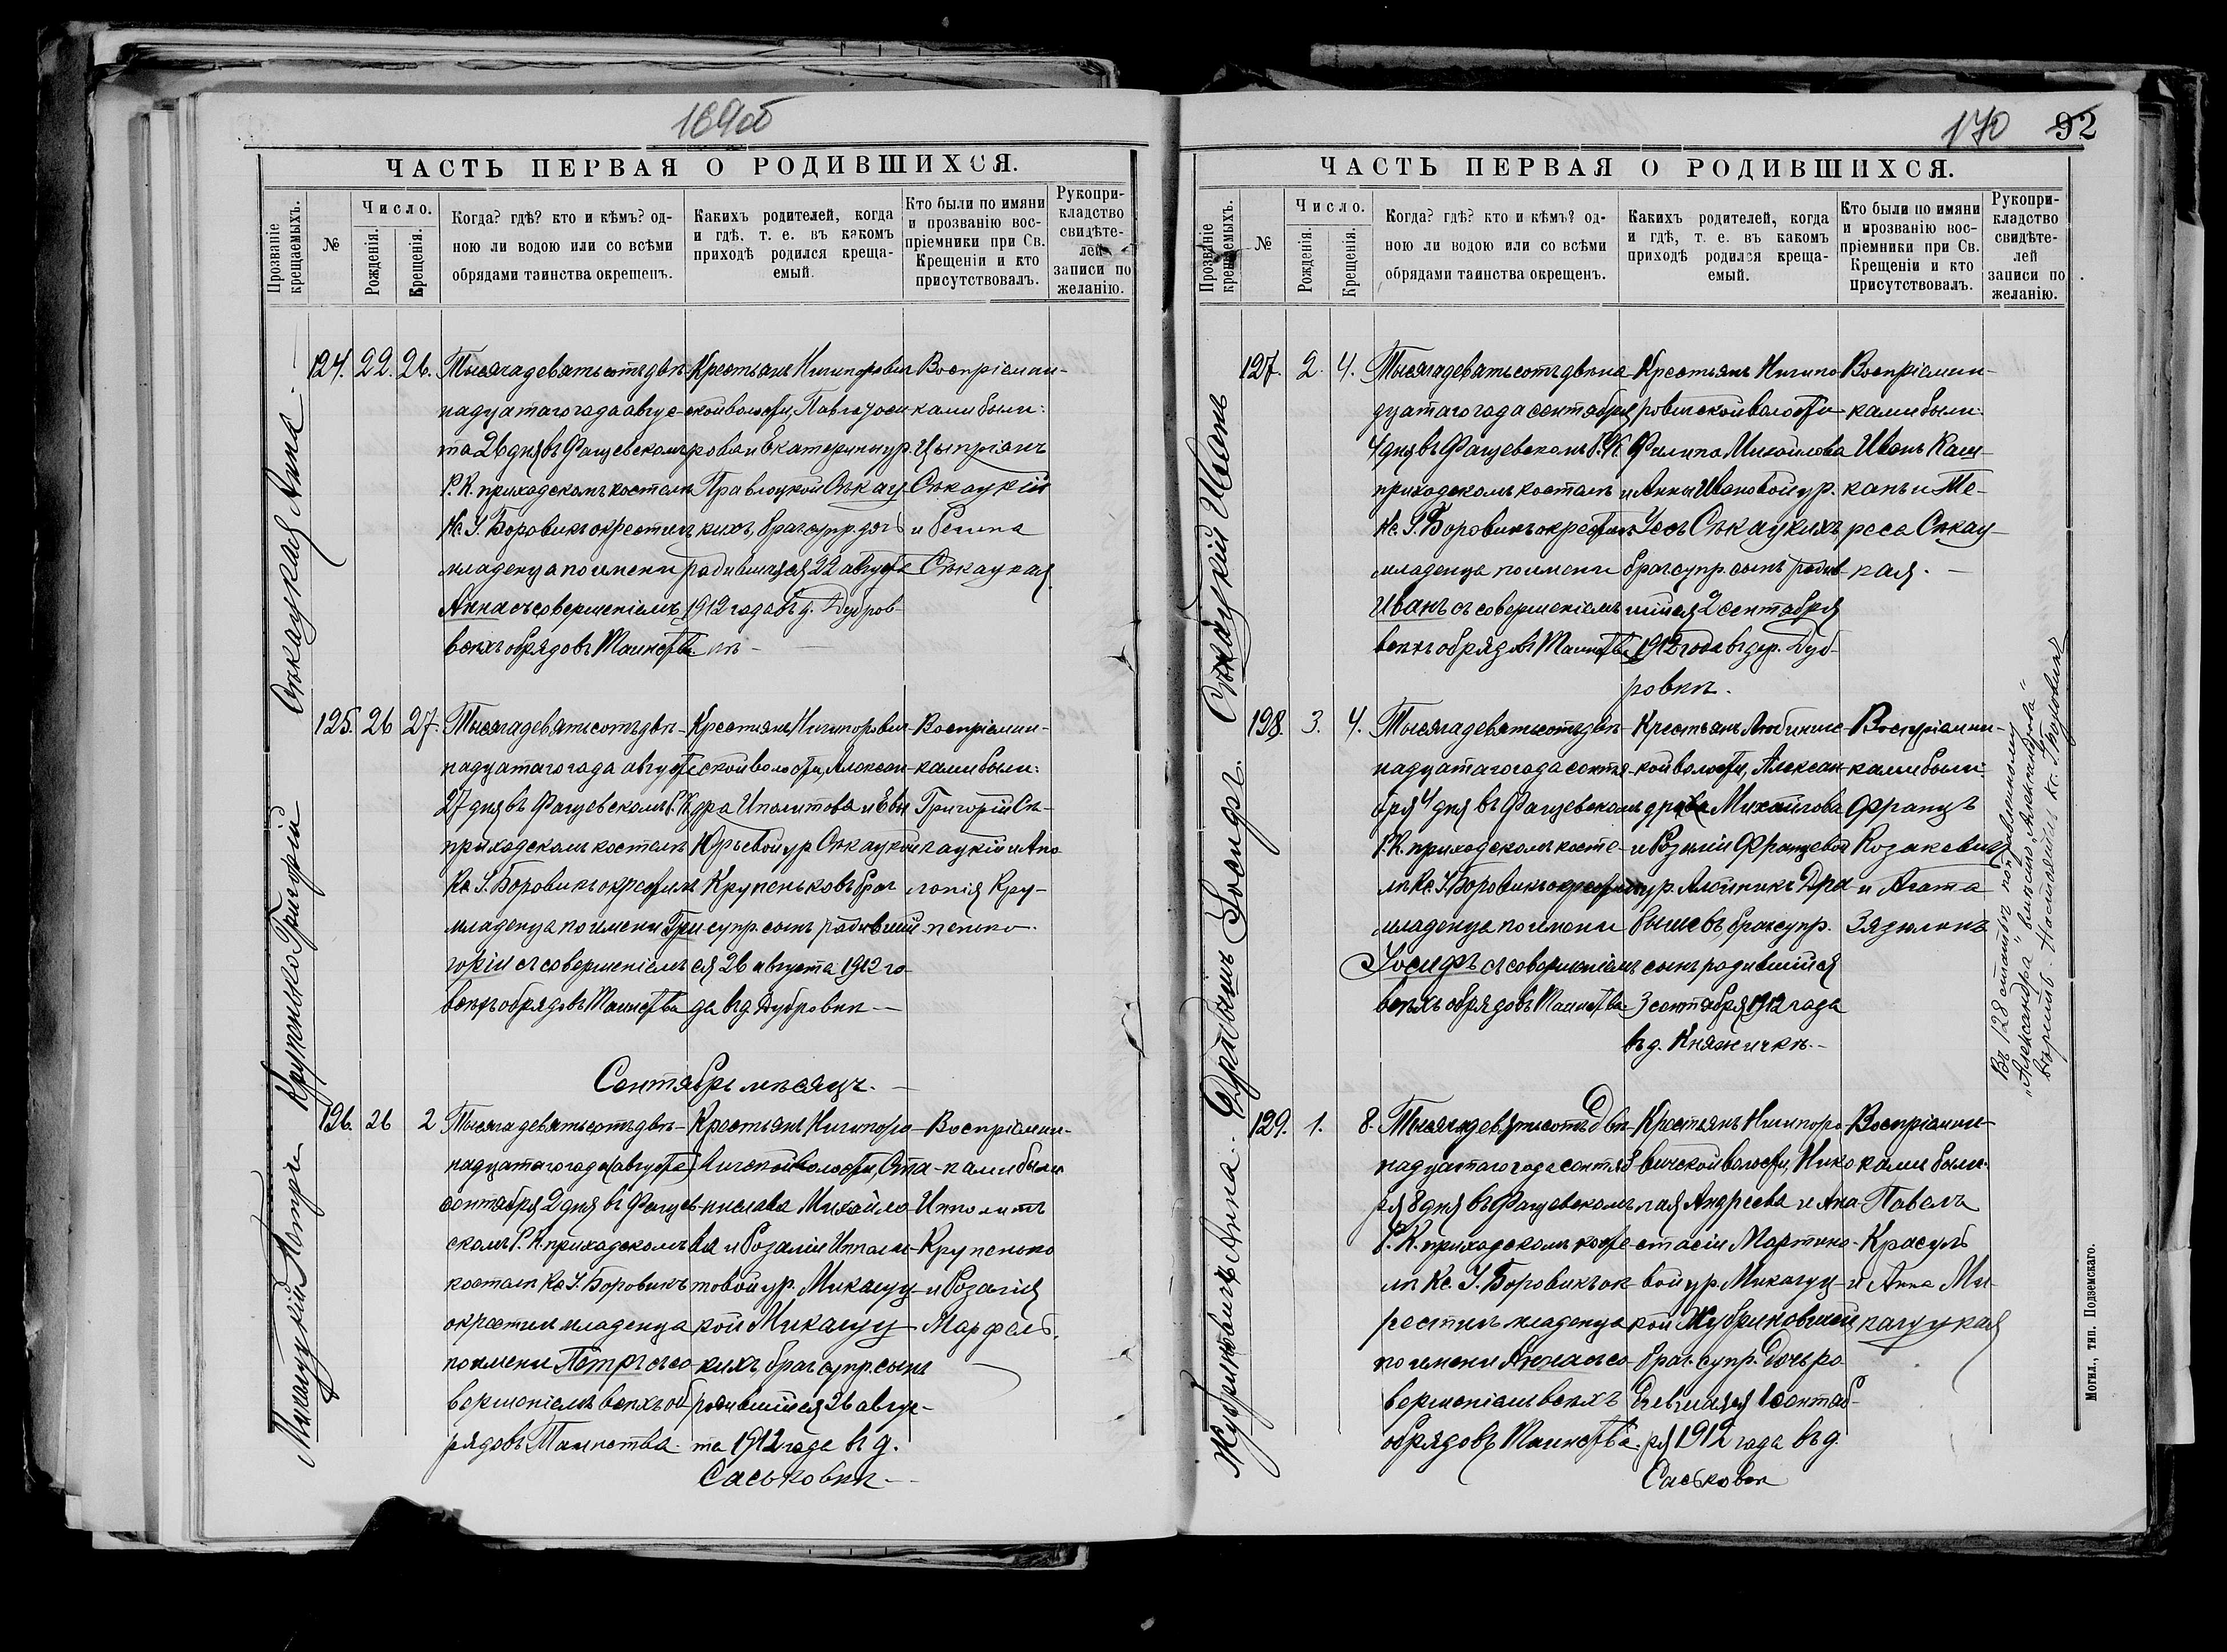 169об
ЧАСТЬ ПЕРВАЯ О РОДИВШИХСЯ.
Прозваніе крещаемыхъ.
№
Число.
Рожденія.
Крещенія.
Когда? гдѣ? кто и кѣмъ? од-
ною ли водою или со всѣми
обрядами таинства окрещенъ.
Какихъ родителей, когда
и гдѣ, т. е. въ какомъ
приходѣ родился креща-
емый.
Кто были по имяни
и прозванію вос-
пріемники при Св.
Крещеніи и кто
присутствовалъ.
Рукопри-
кладство
свидѣте-
лей
записи по
желанію.
Сѣкацкая Анна.
124. 22. 26.
Тысяча девятьсотъ двѣ-
надцатаго года авгус-
та 26 дня въ Фащевскомъ
Р. К. приходскомъ костелѣ
Кс. І. Боровикъ окрестилъ
младенца по имени
Анна съ совершеніемъ
всѣхъ обрядовъ Таинства
Крестьянъ Ничипорович
ской волости, Павла Іоси
рова и Екатерины ур.
Правлоцкой Сѣкац
кихъ, брач. супр. дочь
родившаяся 22 августа
1912 года въ д. Дубров
кѣ
Воспріемни-
ками были:
Цыпріянъ
Сѣкацкій
и Регина
Сѣкацкая
Крупенько Григорій
125. 26 27.
Тысяча девятьсотъ двѣ-
надцатаго года августа
27 дня въ Фащевскомъ Р. К.
приходскомъ костелѣ
Кс. І. Боровикъ окрестилъ
младенца по имени Гри
горій съ совершеніемъ
всѣхъ обрядовъ Таинства
Крестьянъ Ничипорович
ской волости, Алексан
дра Иполитова и Евы
Юрьевой ур Сѣкацкой
Крупеньковъ брач
супр. сынъ родивший
ся 26 августа 1912 го
да въ д. Дубровкѣ
Воспріемни-
ками были:
Григорій Сѣ-
кацкій и Апо
лонія Кру-
пенько.
Сентябрь мѣсяцъ.
Микалуцкій Петръ
126. 26 2
Тысяча девятьсотъ двѣ-
надцатаго года (августа)
сентября 2 дня въ Фащев
скомъ Р. К. приходскомъ
костелѣ Кс. І. Боровикъ
окрестилъ младенца
по имени Петръ съ со
вершеніемъ всѣхъ об
рядовъ Таинства.
Крестьянъ Ничипоро
вичской волости, Ста-
нислава Михайло
ва и Розаліи Иполи-
товой ур. Микалуц
кой Микалуц
кихъ брач супр. сынъ
родившийся 26 авгус-
та 1912 года въ д.
Саськовкѣ
Воспріемни-
ками были
Ипполитъ
Крупенько
и Розалія
Марфель.
170 92
ЧАСТЬ ПЕРВАЯ О РОДИВШИХСЯ.
Прозваніе крещаемыхъ.
№
Число.
Рожденія.
Крещенія.
Когда? гдѣ? кто и кѣмъ? од-
ною ли водою или со всѣми
обрядами таинства окрещенъ.
Какихъ родителей, когда
и гдѣ, т. е. въ какомъ
приходѣ родился креща-
емый.
Кто были по имяни
и прозванію вос-
пріемники при Св.
Крещеніи и кто
присутствовалъ.
Рукопри-
кладство
свидѣте-
лей
записи по
желанію.
Сѣкацкій Иванъ
127. 2. 4.
Тысяча девятьсотъ двѣна
дцатаго года сентября
4 дня въ Фащевскомъ Р. К
приходскомъ костелѣ
Кс. І. Боровикъ окрестилъ
младенца по имени
Иванъ съ совершеніемъ
всѣхъ обрядовъ Таинства
Крестьянъ Ничипо
ровичской волости
Филипа Михайлова
и Анны Ивановой ур.
Сѣкацкихъ,
брач супр. сынъ родив
шийся 2 сентября
1912 года въ дер. Дуб-
ровкѣ.
Воспріемни-
ками были.
Иванъ Каш-
канъ и Те-
реса Сѣкац-
кая.
Драбышъ Іосифъ.
128. 3. 4.
Тысяча девятьсотъ двѣ-
надцатаго года сентя-
бря 4 дня въ Фащевскомъ
Р. К. приходскомъ косте-
лѣ Кс. І. Боровикъ окрестилъ
младенца по имени
Іосифъ съ совершеніемъ
всѣхъ обрядовъ Таинства
Крестьянъ Любинич
ской волости, Алексан
дра Михайлова
и Розаліи Францевой
ур. Алейникъ Дра
бышевъ, брач супр.
сынъ родившийся
3 сентября 1912 года
въ д. Княжичкѣ.
Воспріемни-
ками были
Францъ
Козакевичъ
и Агата
Зязюлька
Въ 128 статьѣ по
„Александра" вписано „Александрова"
вѣрить. Настоятель Кс. І. Боровикъ
Жубриковичъ Анна.
129. 1. 8.
Тысяча девятьсотъ двѣ
надцатаго года сентяб
ря 8 дня въ Фащевскомъ
Р. К. приходскомъ косте
лѣ Кс. І. Боровикъ ок
рестилъ младенца
по имени Анна съ со
вершеніемъ всѣхъ
обрядовъ Таинства.
Крестьянъ Ничипоро
вичской волости, Нико
лая Андреева и Ана
стасіи Мартино-
вой ур. Микалуц-
кой Жубриковичей
брач. супр. дочь ро
дившаяся 1 сентяб-
ря 1912 года въ д.
Саськовкѣ
Воспріемни-
ками были.
Павелъ
Красуль
и Анна Ми-
калуцкая
Могил., тип. Подземскаго.